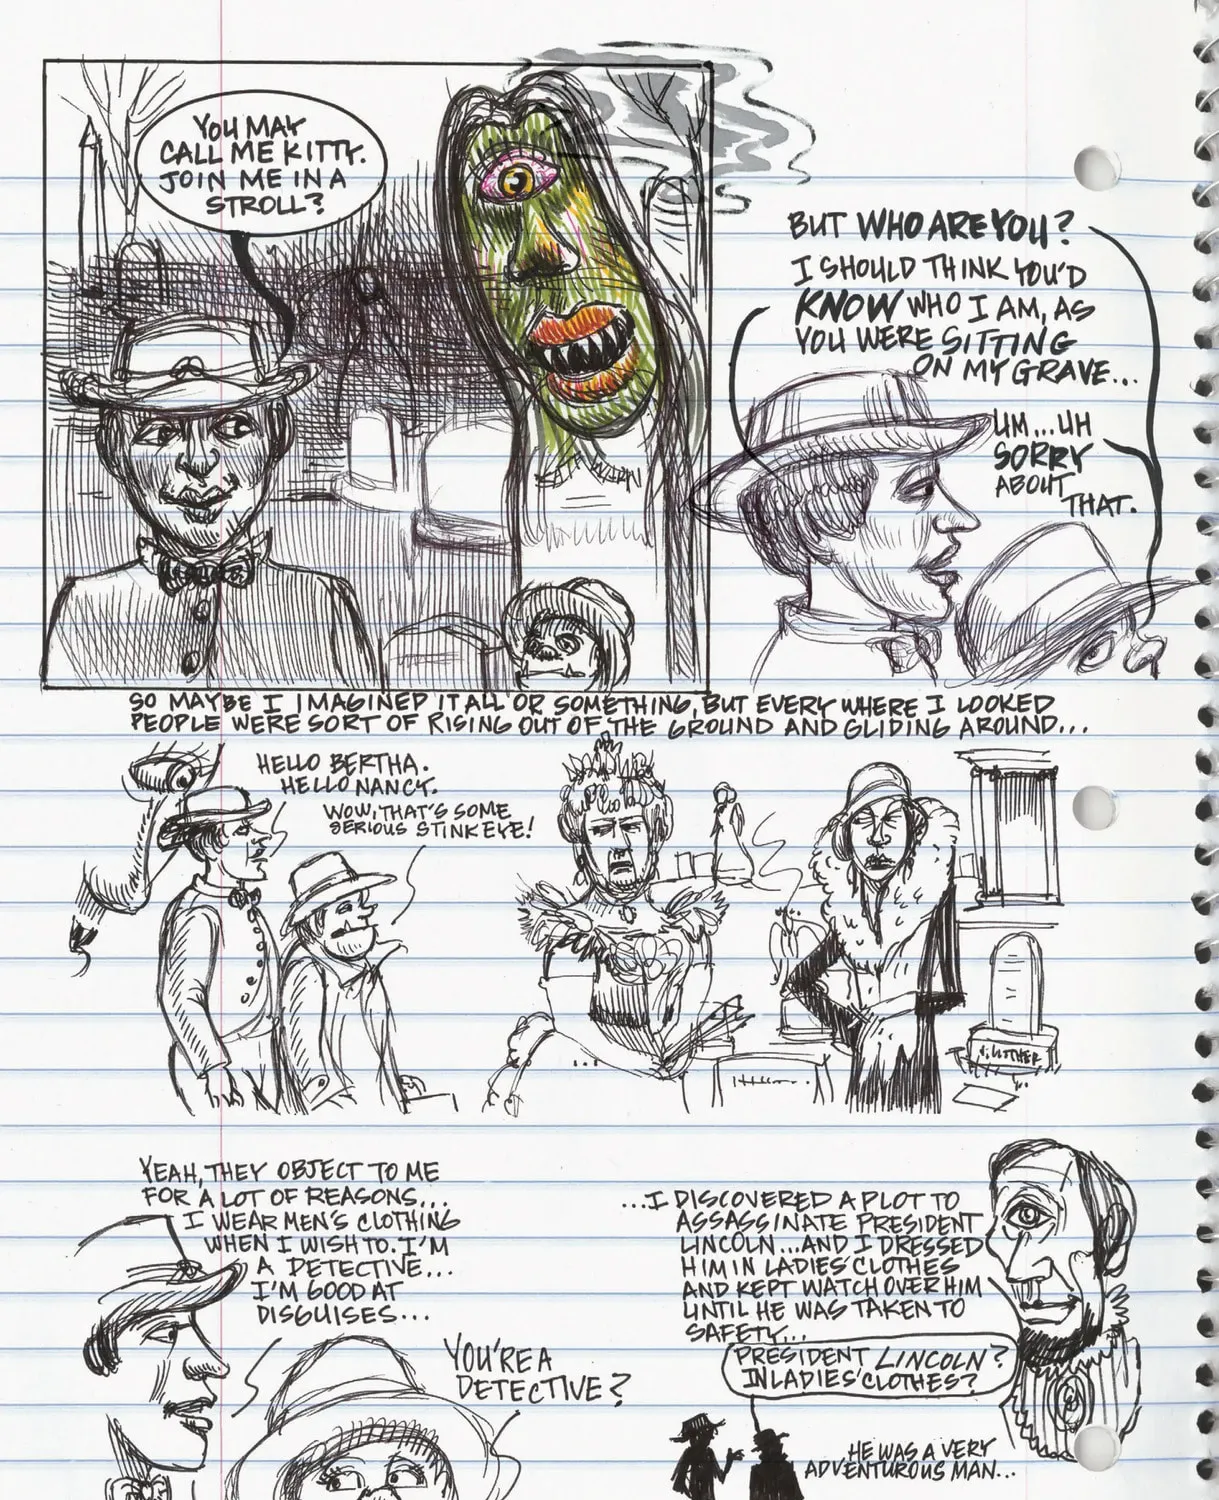 YOU MAY
CALL ME KITTY.
JOIN ME IN A
STROLL?
BUT WHO ARE YOU?
I SHOULD THINK YOU'D
KNOW WHO I AM, AS
YOU WERE SITTING
ON MY GRAVE...
UM...UH
SORRY
ABOUT
THAT.
SO MAYBE I IMAGINED IT ALL OR SOMETHING, BUT EVERY WHERE I LOOKED
PEOPLE WERE SORT OF RISING OUT OF THE GROUND AND GLIDING AROUND...
HELLO BERTHA.
HELLO NANCY.
WOW, THAT'S SOME
SERIOUS STINKEYE!
YEAH, THEY OBJECT TO ME
FOR A LOT OF REASONS...
I WEAR MEN'S CLOTHING
WHEN I WISH TO. I'M
A DETECTIVE...
I'M GOOD AT
DISGUISES...
YOU'RE A
DETECTIVE?
...I DISCOVERED A PLOT TO
ASSASSINATE PRESIDENT
LINCOLN...AND I DRESSED
HIM IN LADIES' CLOTHES
AND KEPT WATCH OVER HIM
UNTIL HE WAS TAKEN TO
SAFETY...
PRESIDENT LINCOLN?
IN LADIES' CLOTHES?
HE WAS A VERY
ADVENTUROUS MAN...